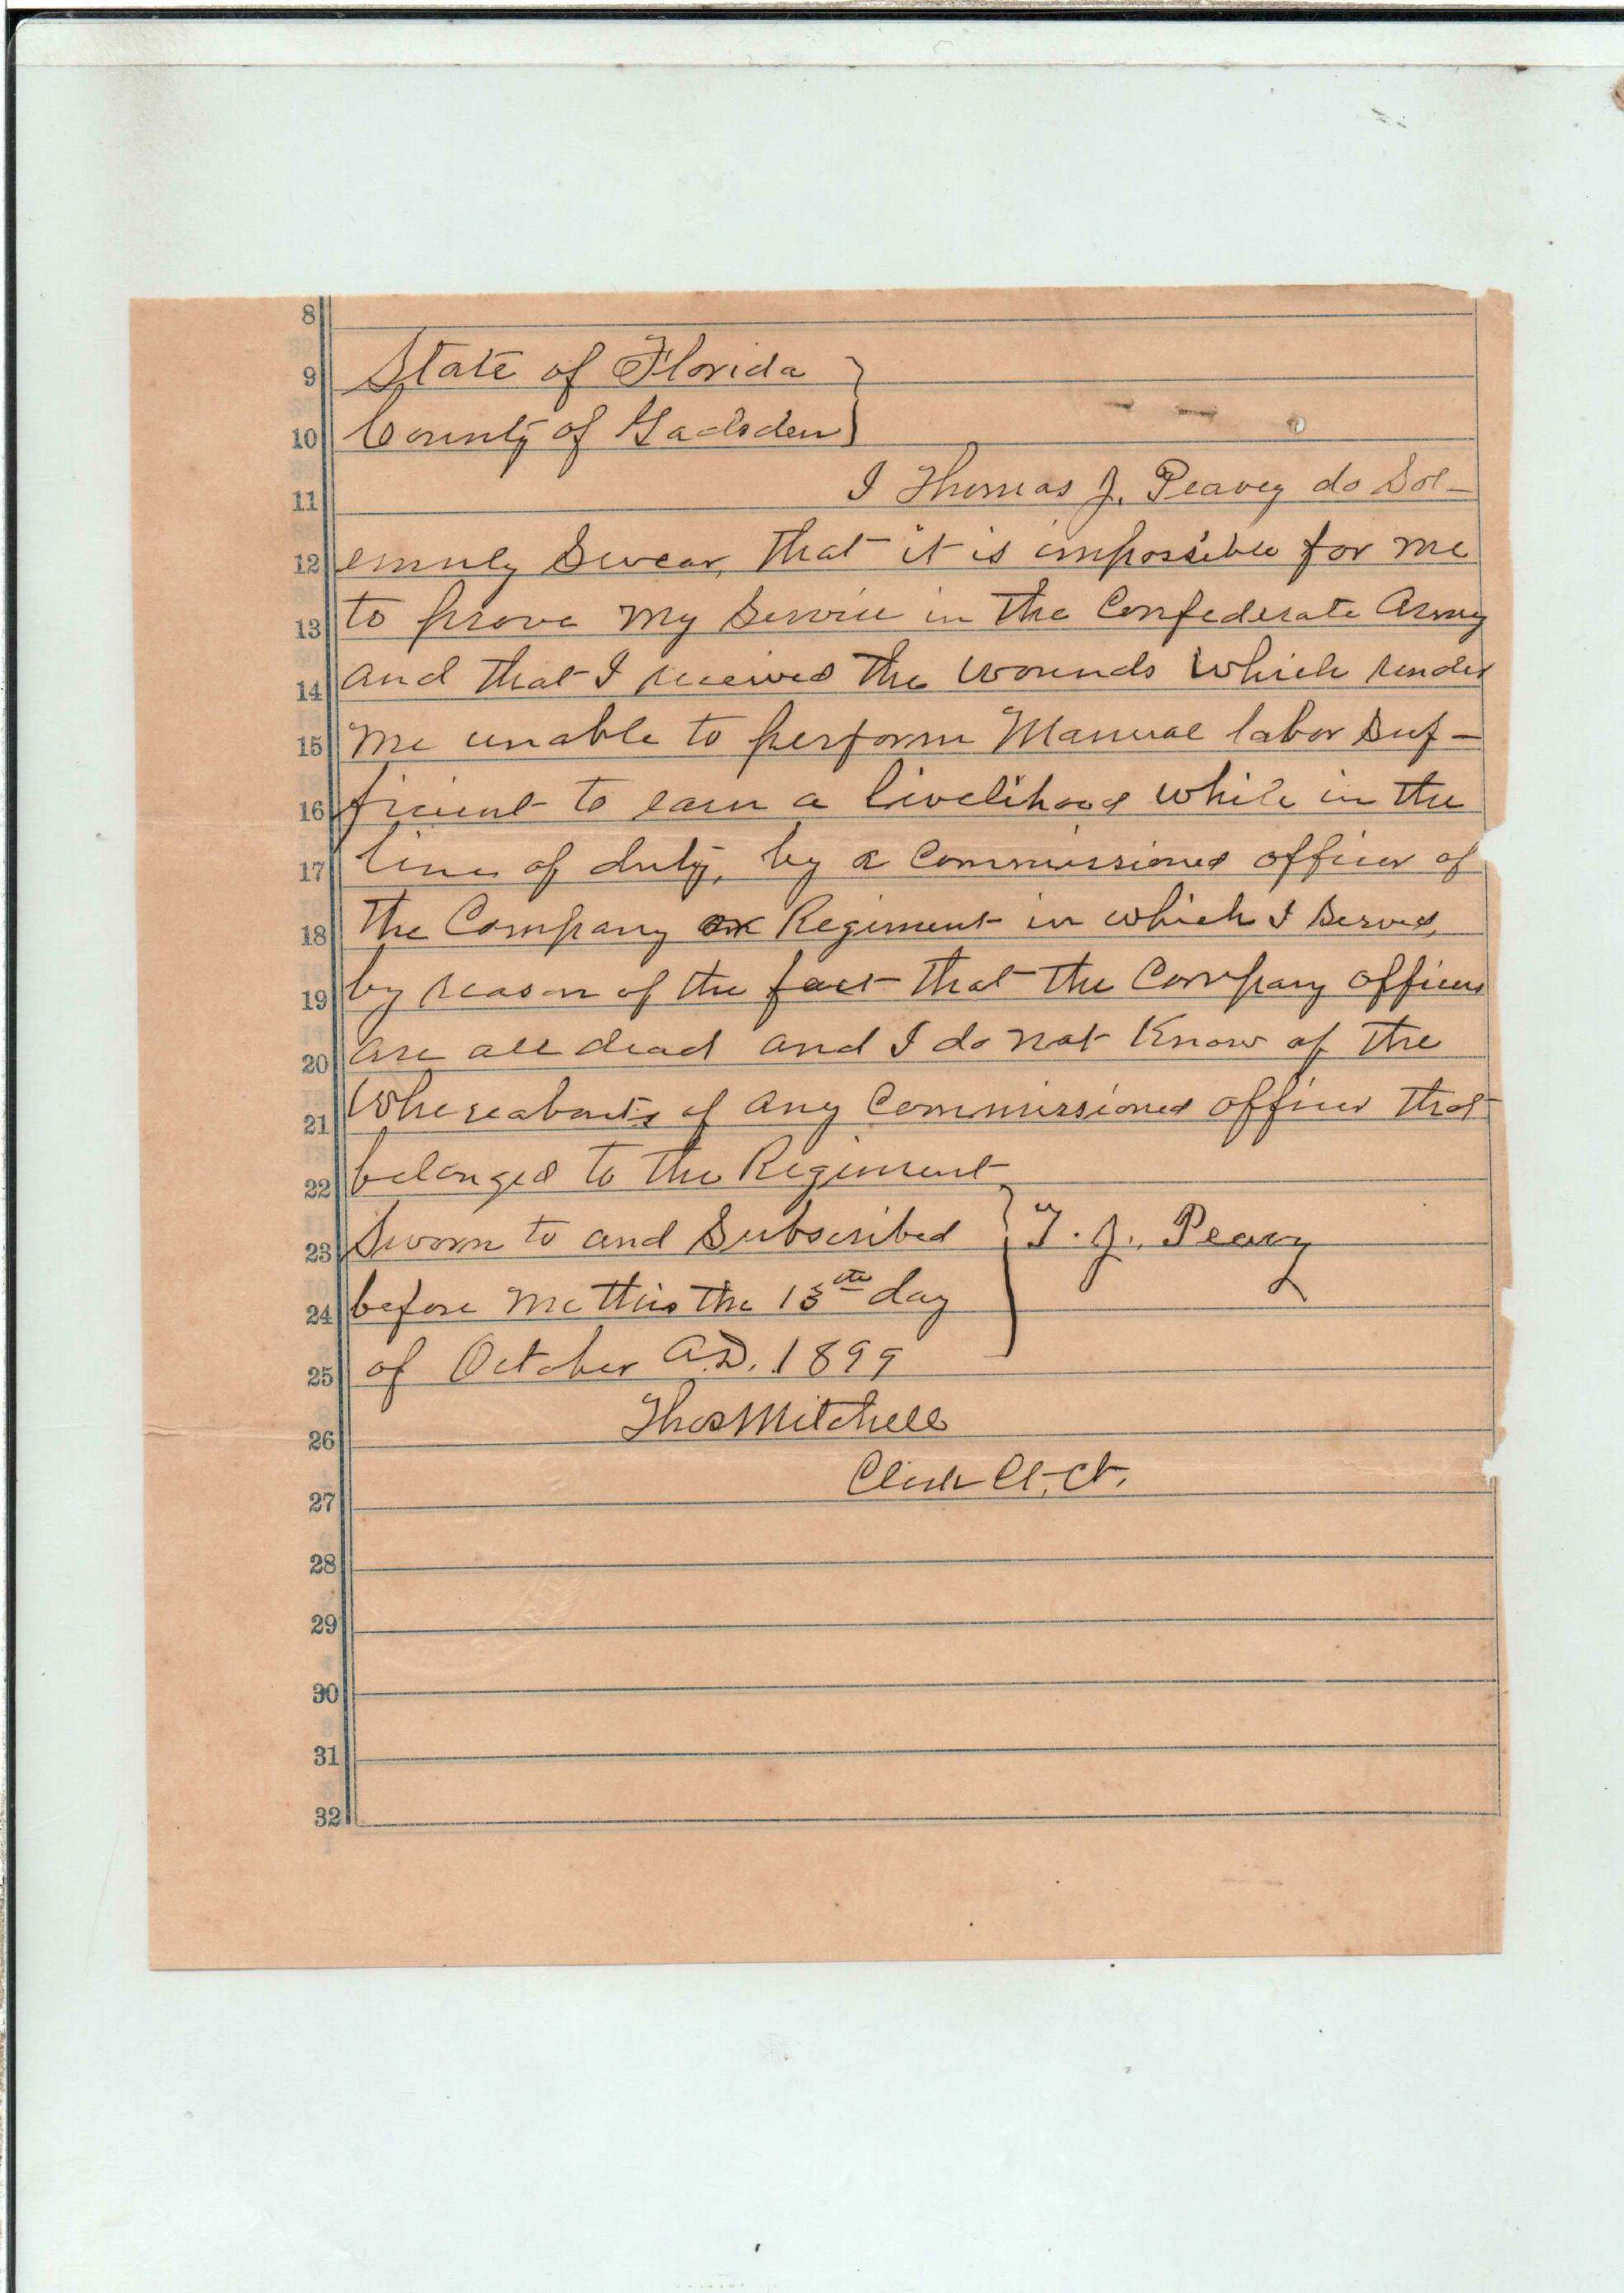 8
9 State of Florida }
10 County of Gadsden }
11 I Thomas J. Peavy do Sol-
12 emnly Swear, that it is impossible for me
13 to prove my Service in the Confederate Army
14 and that I received the wounds which render
15 me unable to perform Manual labor Suf-
16 ficient to earn a livelihood while in the
17 line of duty, by a Commissioned officer of
18 the Company or Regiment in which I Served,
19 by reason of the fact that the Company officers
20 are all dead and I do not Know of the
21 Whereabouts of any Commissioned officer that
22 belonged to the Regiment
23 Sworn to and Subscribed } T. J. Peavy
24 before me this the 13th day
25 of October A.D. 1899
26 Thos Mitchell
27 Clerk Ct. Ct.
28
29
30
31
32